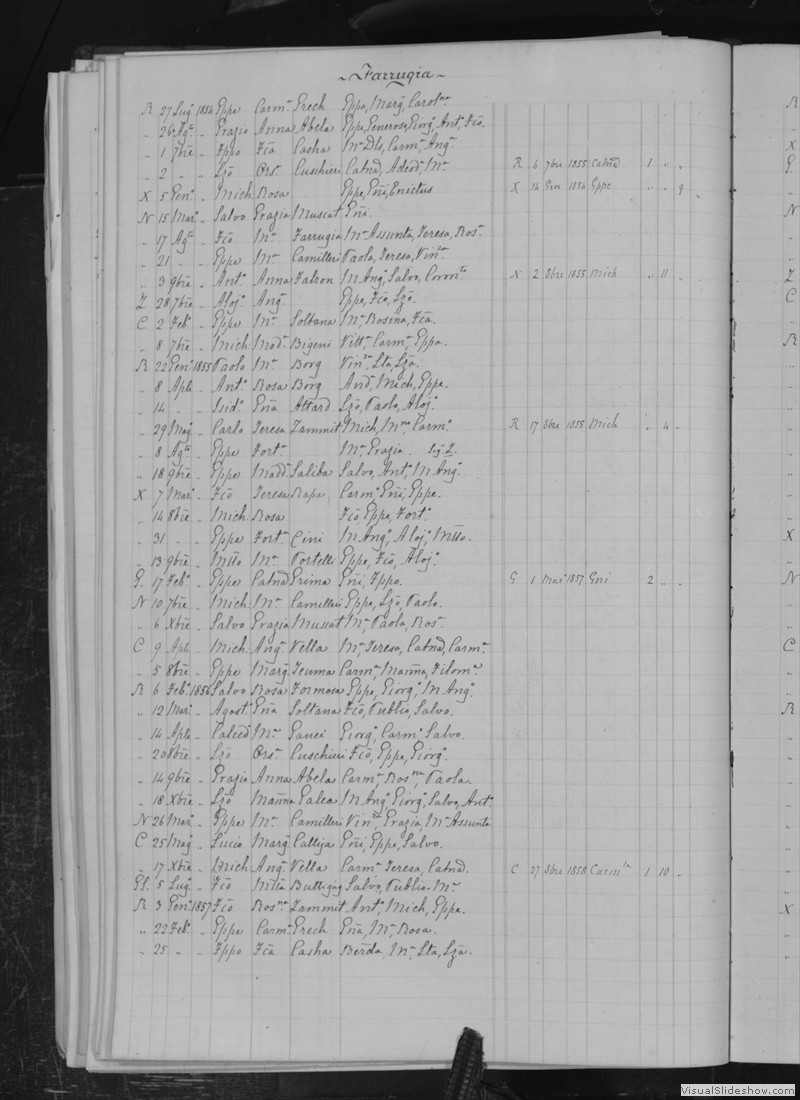 Farrugia
R 27 Lug. 1854 Eppe Carm. Grech Eppa, Marg. Carol.na
„ 26 Ag. „ Grazio Anna Abela Eppa, Generosa, Giorg. Ant. Fcõ.
„ 1 7bre „ Fppo Fcã Casha Mª Dls, Carm. Ang.
„ 2 „ „ Lzõ Ors. Cuschieri Catnã, Adeod. Mª R 6 7bre 1855 Catnã 1 „ „
X 5 Gen. „ Mich. Rosa Eppe, Gñi, Enictus X 14 Gen 1854 Eppe „ „ 9
N 15 Mar. „ Salvo Grazia Muscat Gñi.
„ 17 Ag. „ Fcõ Mª Farrugia Mª Assunta, Teresa, Ros.
„ 21 „ „ Eppe Mª Camilleri Paola, Teresa, Vin.
„ 3 9bre „ Ant. Anna Falzon M. Ang. Salvo, Coron.ta N 2 Xbre 1855 Mich „ 11 „
Z 28 7bre „ Aloj. Ang. Eppe, Fcõ, Lzõ.
C 2 Feb. „ Eppe Mª Soltana Mª Rosina, Fcã.
„ 8 7bre „ Mich Mad. Bigeni Vitt. Carm. Eppa.
R 22 Gen. 1855 Paolo Mª Borg Vin. Lta, Lzã.
„ 8 Aple „ Ant. Rosa Borg And. Mich, Eppe.
„ 14 „ „ Isid. Gña Attard Lzõ, Paolo, Aloj.
„ 29 Mag. „ Carlo Teresa Zammit Mich, M. Carm. R 17 Xbre 1855 Mich „ 4 „
„ 8 Ag. „ Eppe Fort. Mª Grazia.
„ 18 9bre „ Eppe Madd. Saliba Salvo, Ant. M. Ang.
X 7 Mar. „ Fcõ Teresa Rapa Carm. Gñi, Eppe.
„ 14 8bre „ Mich. Rosa Fcõ, Eppe, Fort.
„ 31 „ „ Eppe Fort. Cini M. Ang. Aloj. Nitto.
„ 13 9bre „ Nitto Mª Portelli Eppe, Fcõ, Aloj.
G. 17 Feb. „ Eppe Catnã Grima Gñi, Fppo. G 1 Mar 1857 Gni 2 „ „
N 10 7bre „ Mich. Mª Camilleri Eppe, Lzõ, Paolo.
„ 6 Xbre „ Salvo Grazia Muscat Mª Paola, Ros.
C 9 Aple „ Mich: Ang. Vella Mª Teresa, Catnã, Carm.
„ 5 8bre „ Eppe Marg. Teuma Carm. Mañna, Filom.
R 6 Feb. 1856 Salvo Rosa Formosa Eppe, Giorg. M. Ang.
„ 12 Mar. „ Agost. Gña Soltana Fcõ, Publio, Salvo.
„ 14 Aple „ Calced. Mª Gauci Giorg. Carm. Salvo.
„ 20 8bre „ Lzõ Ors. Cuschieri Fcõ, Eppe, Giorg.
„ 14 9bre „ Grazio Anna Abela Carm. Ros.na Paola.
„ 18 Xbre „ Lzõ Mañna Galea M. Ang. Giorg. Salvo, Ant.
N 26 Mar. „ Eppe Mª Camilleri Vin. Grazia, Mª Assunta
C 25 Mag. „ Lucio Marg. Calleja Gñi, Eppe, Salvo.
„ 17 Xbre „ Mich Ang. Vella Carm. Teresa, Catnã. C 27 Xbre 1858 Carm.la 1 10 „
GS. 5 Lug. „ Fcõ Nitta Buttigieg Salvo, Publio. Mª
R 3 Gen. 1857 Fcõ Ros.na Zammit Ant. Mich, Eppe.
„ 22 Feb. „ Eppe Carm. Grech Gña, Mª Rosa.
„ 25 „ Fppo Fcã Casha Berda, Mª Lta, Lzã.
R
X
G.
Z
C
R
X
N
C
R
X
VisualSlideshow.com